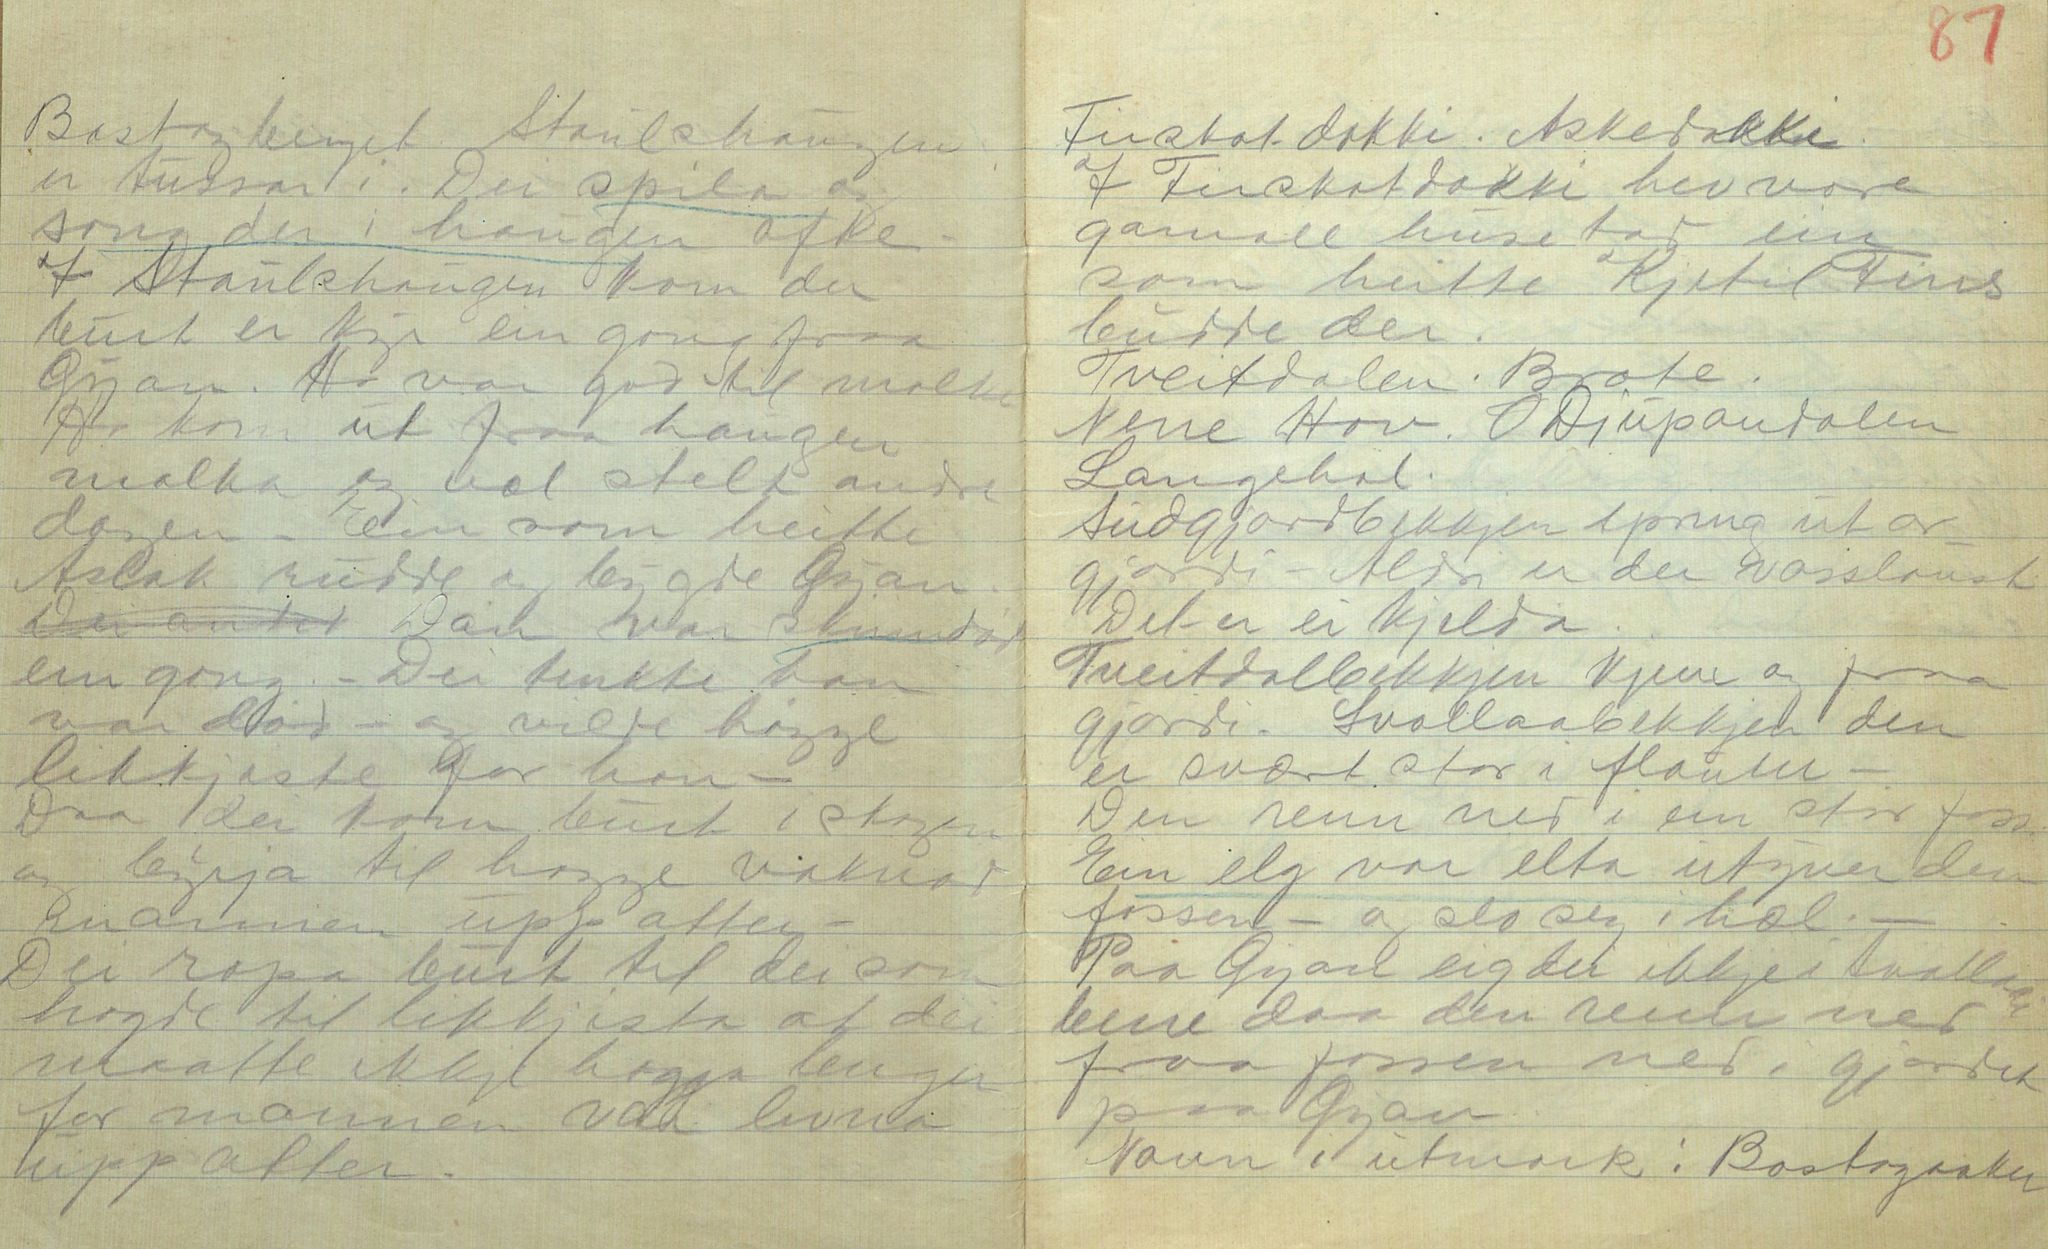 Bastogberget. Staulshaugen
er tussar i. Dei spila og
song der i haugen ofte -
I Staulshaugen kom der
burt ei kyr ein gong fraa
Gyan. Ho var god til molke
Ho kom ut fraa haugen
molka og vel stelt andre
dagen - Ein som heitte
Aslak rudde og bygde Gyan.
Dan var skinndød
ein gong. - Dei tenkte han
var død - og vilde hogge
likkjiste for han -
Daa dei kom burt i skogen
og byrja til hogge vaknad
mannen upp atter -
Dei ropa burt til dei som
hogde til likkjista at dei
maatte ikkje hogga lenger
for mannen var livna
upp atter.
87
Finskot dokki. Askedokki.
I Finskotdokki hev vore
gamall husetad ein
som heitte Kjetil Fins
budde der.
Tveitdalen. Brote.
Nerre Hov. Djupandalen
Langehol.
Sudgjordbekkjen spring ut or
gjordi - Aldri er der vasslaust
Det er ei kjelda.
Tveitdalbekkjen kjem og fraa
gjordi. Svallaabekkjen den
er svært stor i flauter -
Den renn ned i ein stor foss.
Ein elg var elta utyver den
fossen - og slo seg i hæl. -
Paa Gyan eig dei ikkje i Svallaa
berre daa den renn ned
fraa fossen ned i gjordet
paa Gyan
Navn i utmark: Bastogaaker